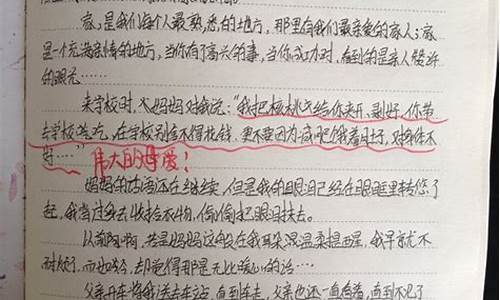 家，是我们每个人最熟悉的地方，那里有我们最亲爱的家人；家
是一个充满亲情的地方，当你有了高兴的事，当你成功时，看到的是亲人赞许
的眼光……
来学校时，妈妈对我说：“我把核桃给你夹开，剥好，你带
去学校吃，在学校别舍不得花钱，更不要因为减肥饿着肚子，对身体不
好……”伟大的母爱！
妈妈的话还在继续，但是我的眼泪已经在眼眶里转悠了
起，我借过去收拾衣物，偷偷把眼泪抹去。
以前啊，若是妈妈这般在我耳朵温柔提醒，我早就不
耐烦了，而如今，却觉得那是无比暖心的话……
父亲开车将我送去车站，直到车走，父亲也还一直看着，直到不见了